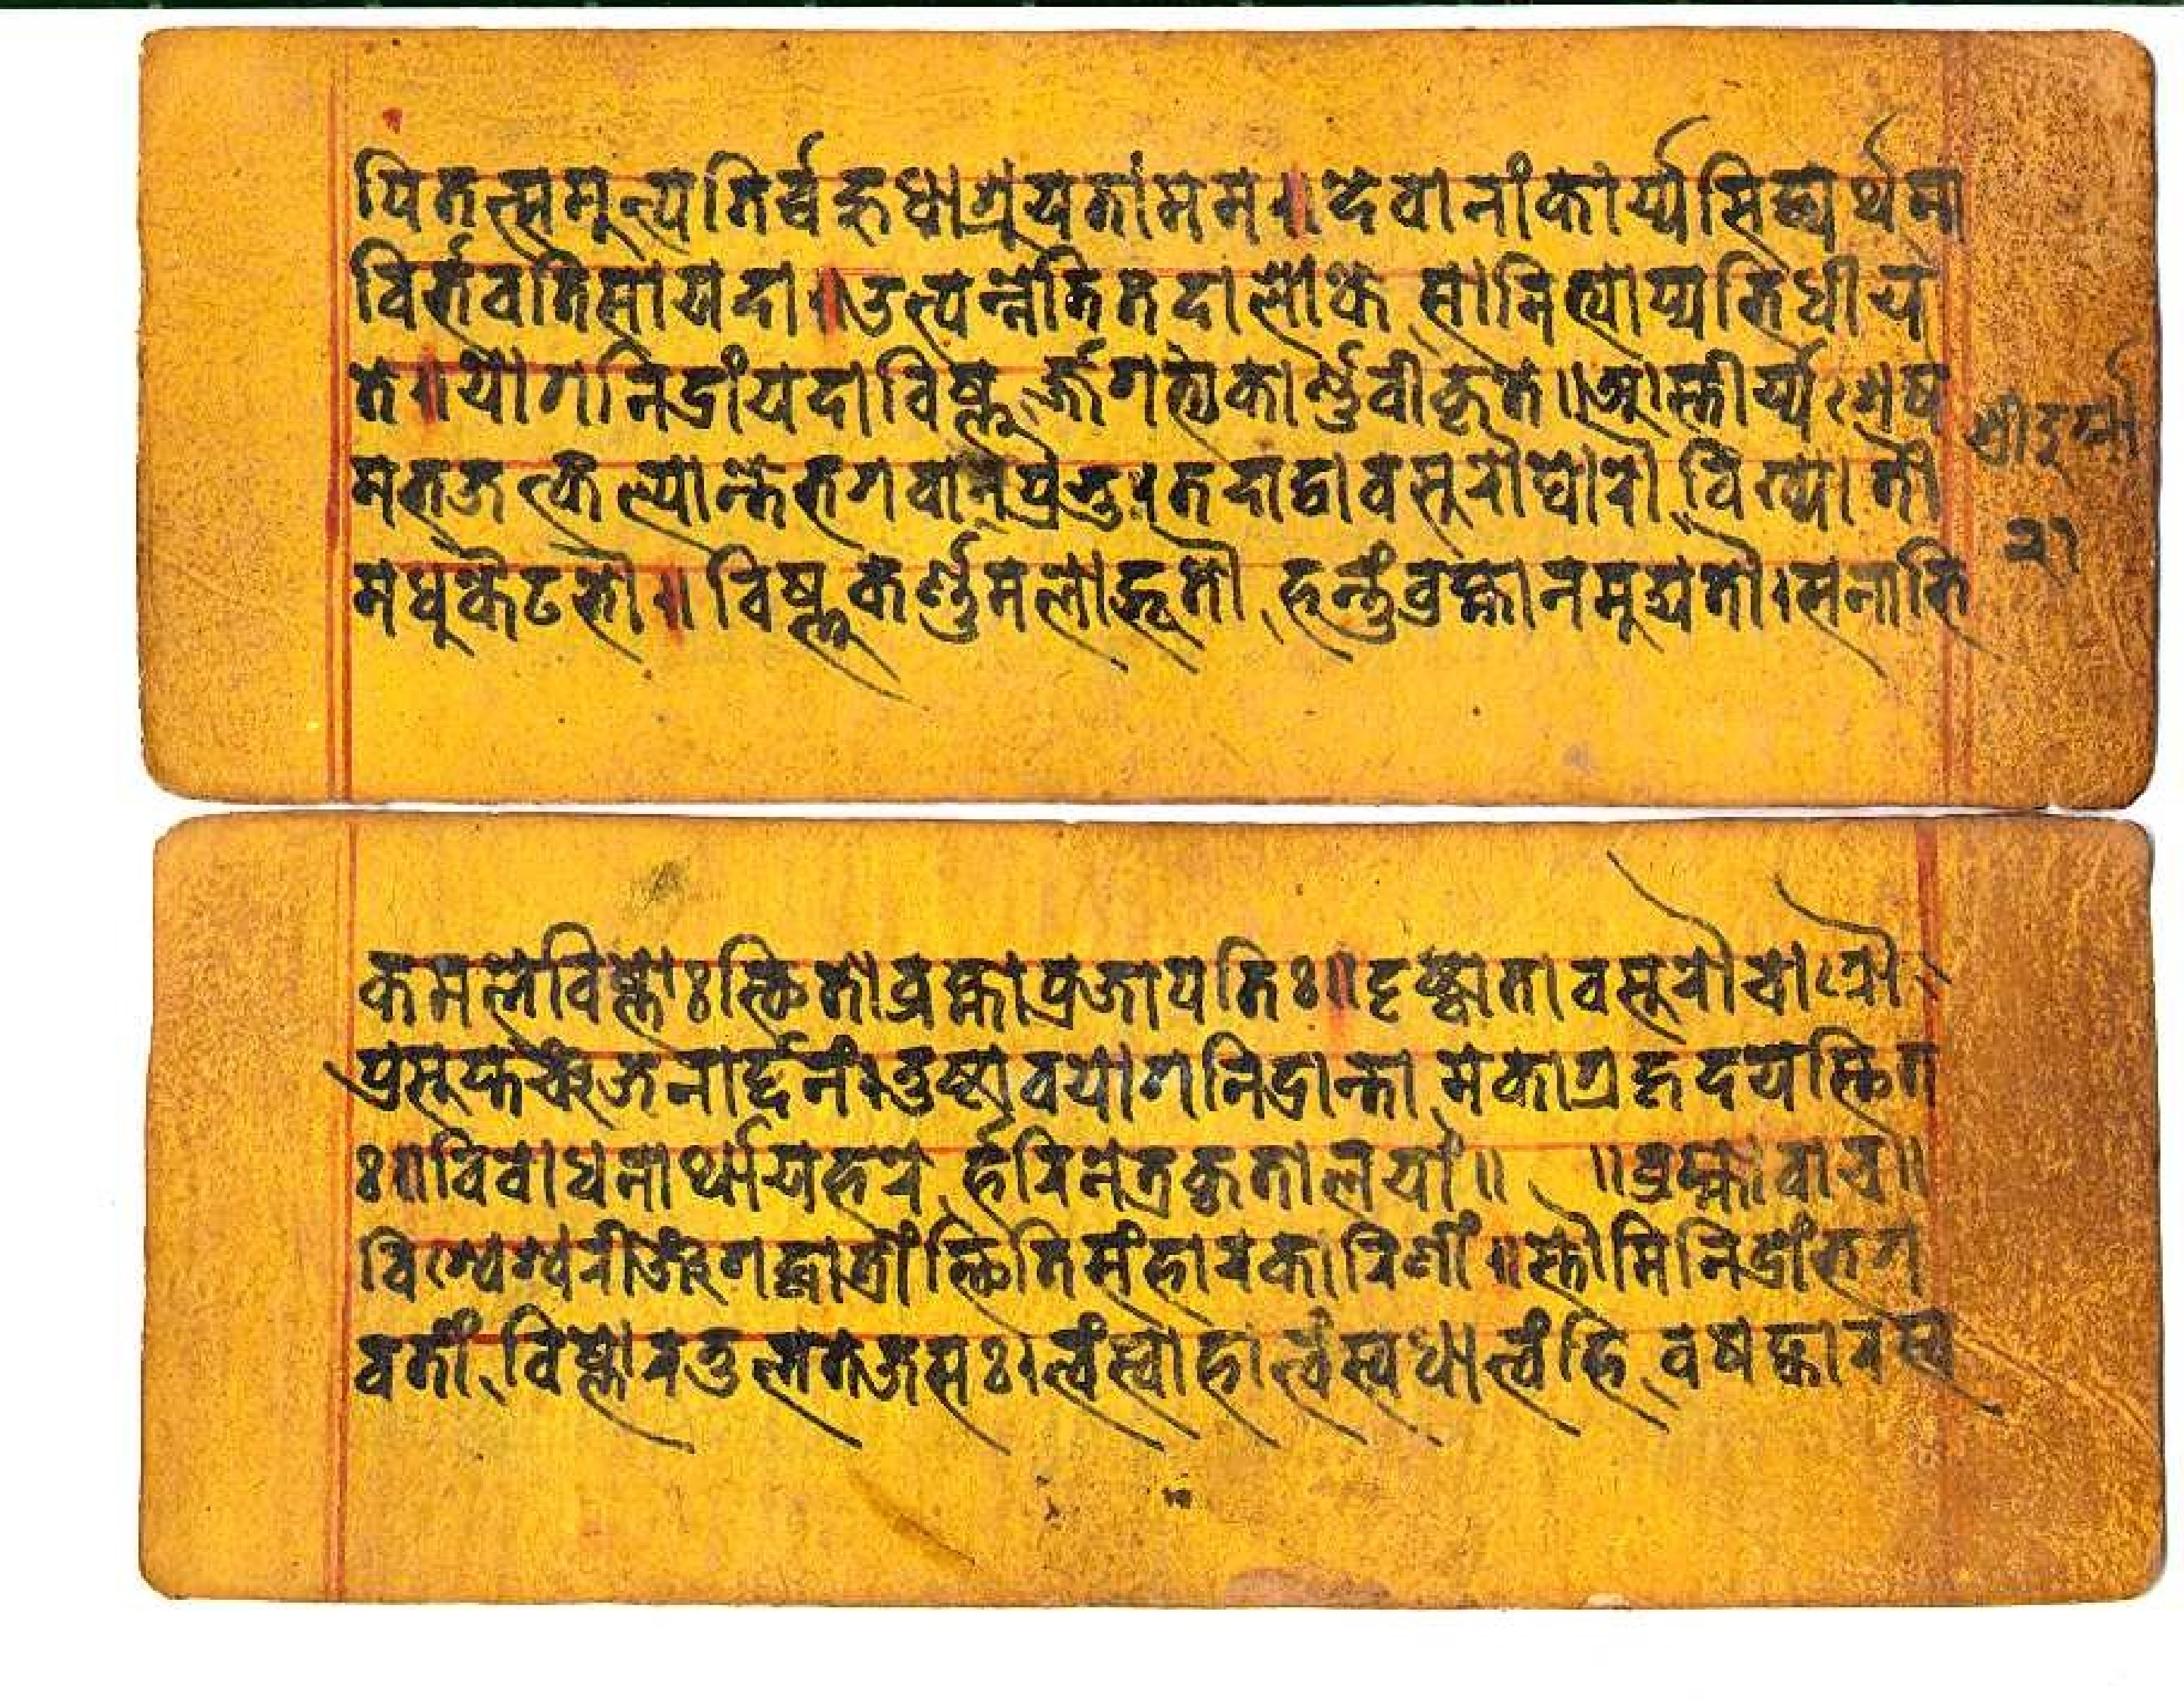 पि तत्समुत्पत्तिर्ब्बहुधा श्रूयतां मम ॥ देवानां कार्य्यसिद्ध्यर्थमा
विर्भवति सा यदा ॥ उत्पन्नेति तदा लोके सा नित्याप्यभिधीय
ते ॥ योगनिद्रां यदा विष्णुर्ज्जगत्येकार्ण्णवीकृते ॥ आस्तीर्य्य शेष
मभजत्कल्पान्ते भगवान् प्रभुः । तदा द्वावसुरौ घोरौ विख्यातौ
मधुकैटभौ ॥ विष्णुकर्ण्णमलोद्भूतौ हन्तुं ब्रह्मानमुद्यतौ । स नाभि
श्रीदुर्गा
२१
कमले विष्णोः स्थितो ब्रह्मा प्रजापतिः ॥ दृष्ट्वा तावसुरौ चोग्रौ
प्रसुप्तञ्च जनार्द्दनं । तुष्टाव योगनिद्रान्तामेकाग्रहृदयस्थित
ः ॥ विबोधनार्थाय हरेर्हरिनेत्रकृतालयां ॥ ॥ ब्रह्मोवाच ॥
विश्वेश्वरीं जगद्धात्रीं स्थितिसंहारकारिणीं ॥ स्तौमि निद्रां भग
वतीं विष्णोरतुलतेजसः । त्वं स्वाहा त्वं स्वधा त्वं हि वषट्कारस्व